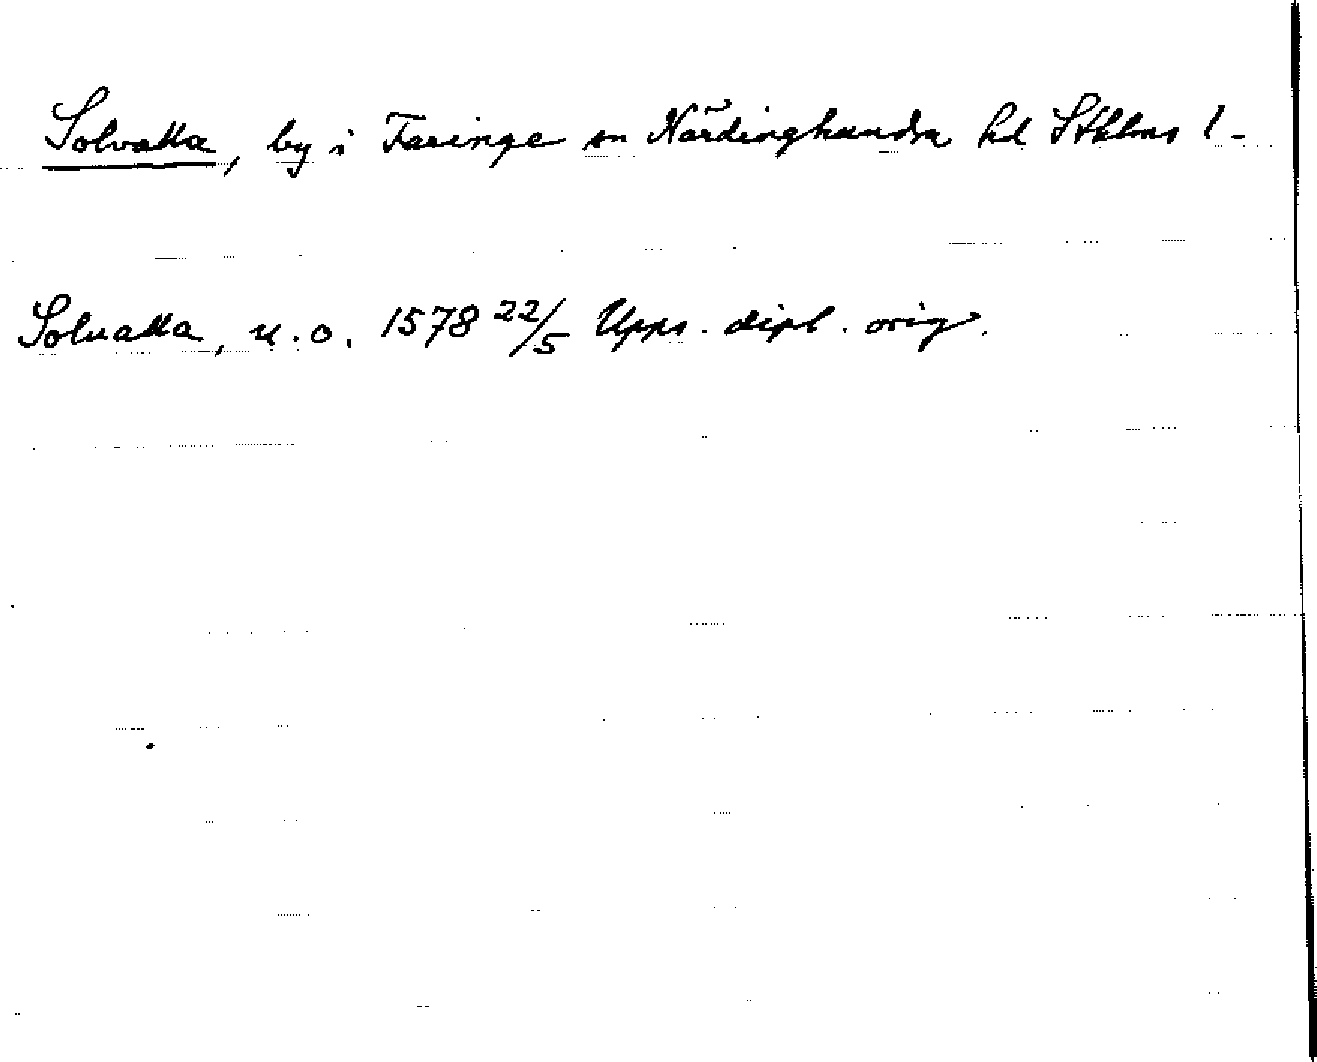 Solvatta, by i Faringe sn Närdinghundra hd Sthlms l.
Soluatta, u.o. 1578 22/5 Upps. dipl. orig.